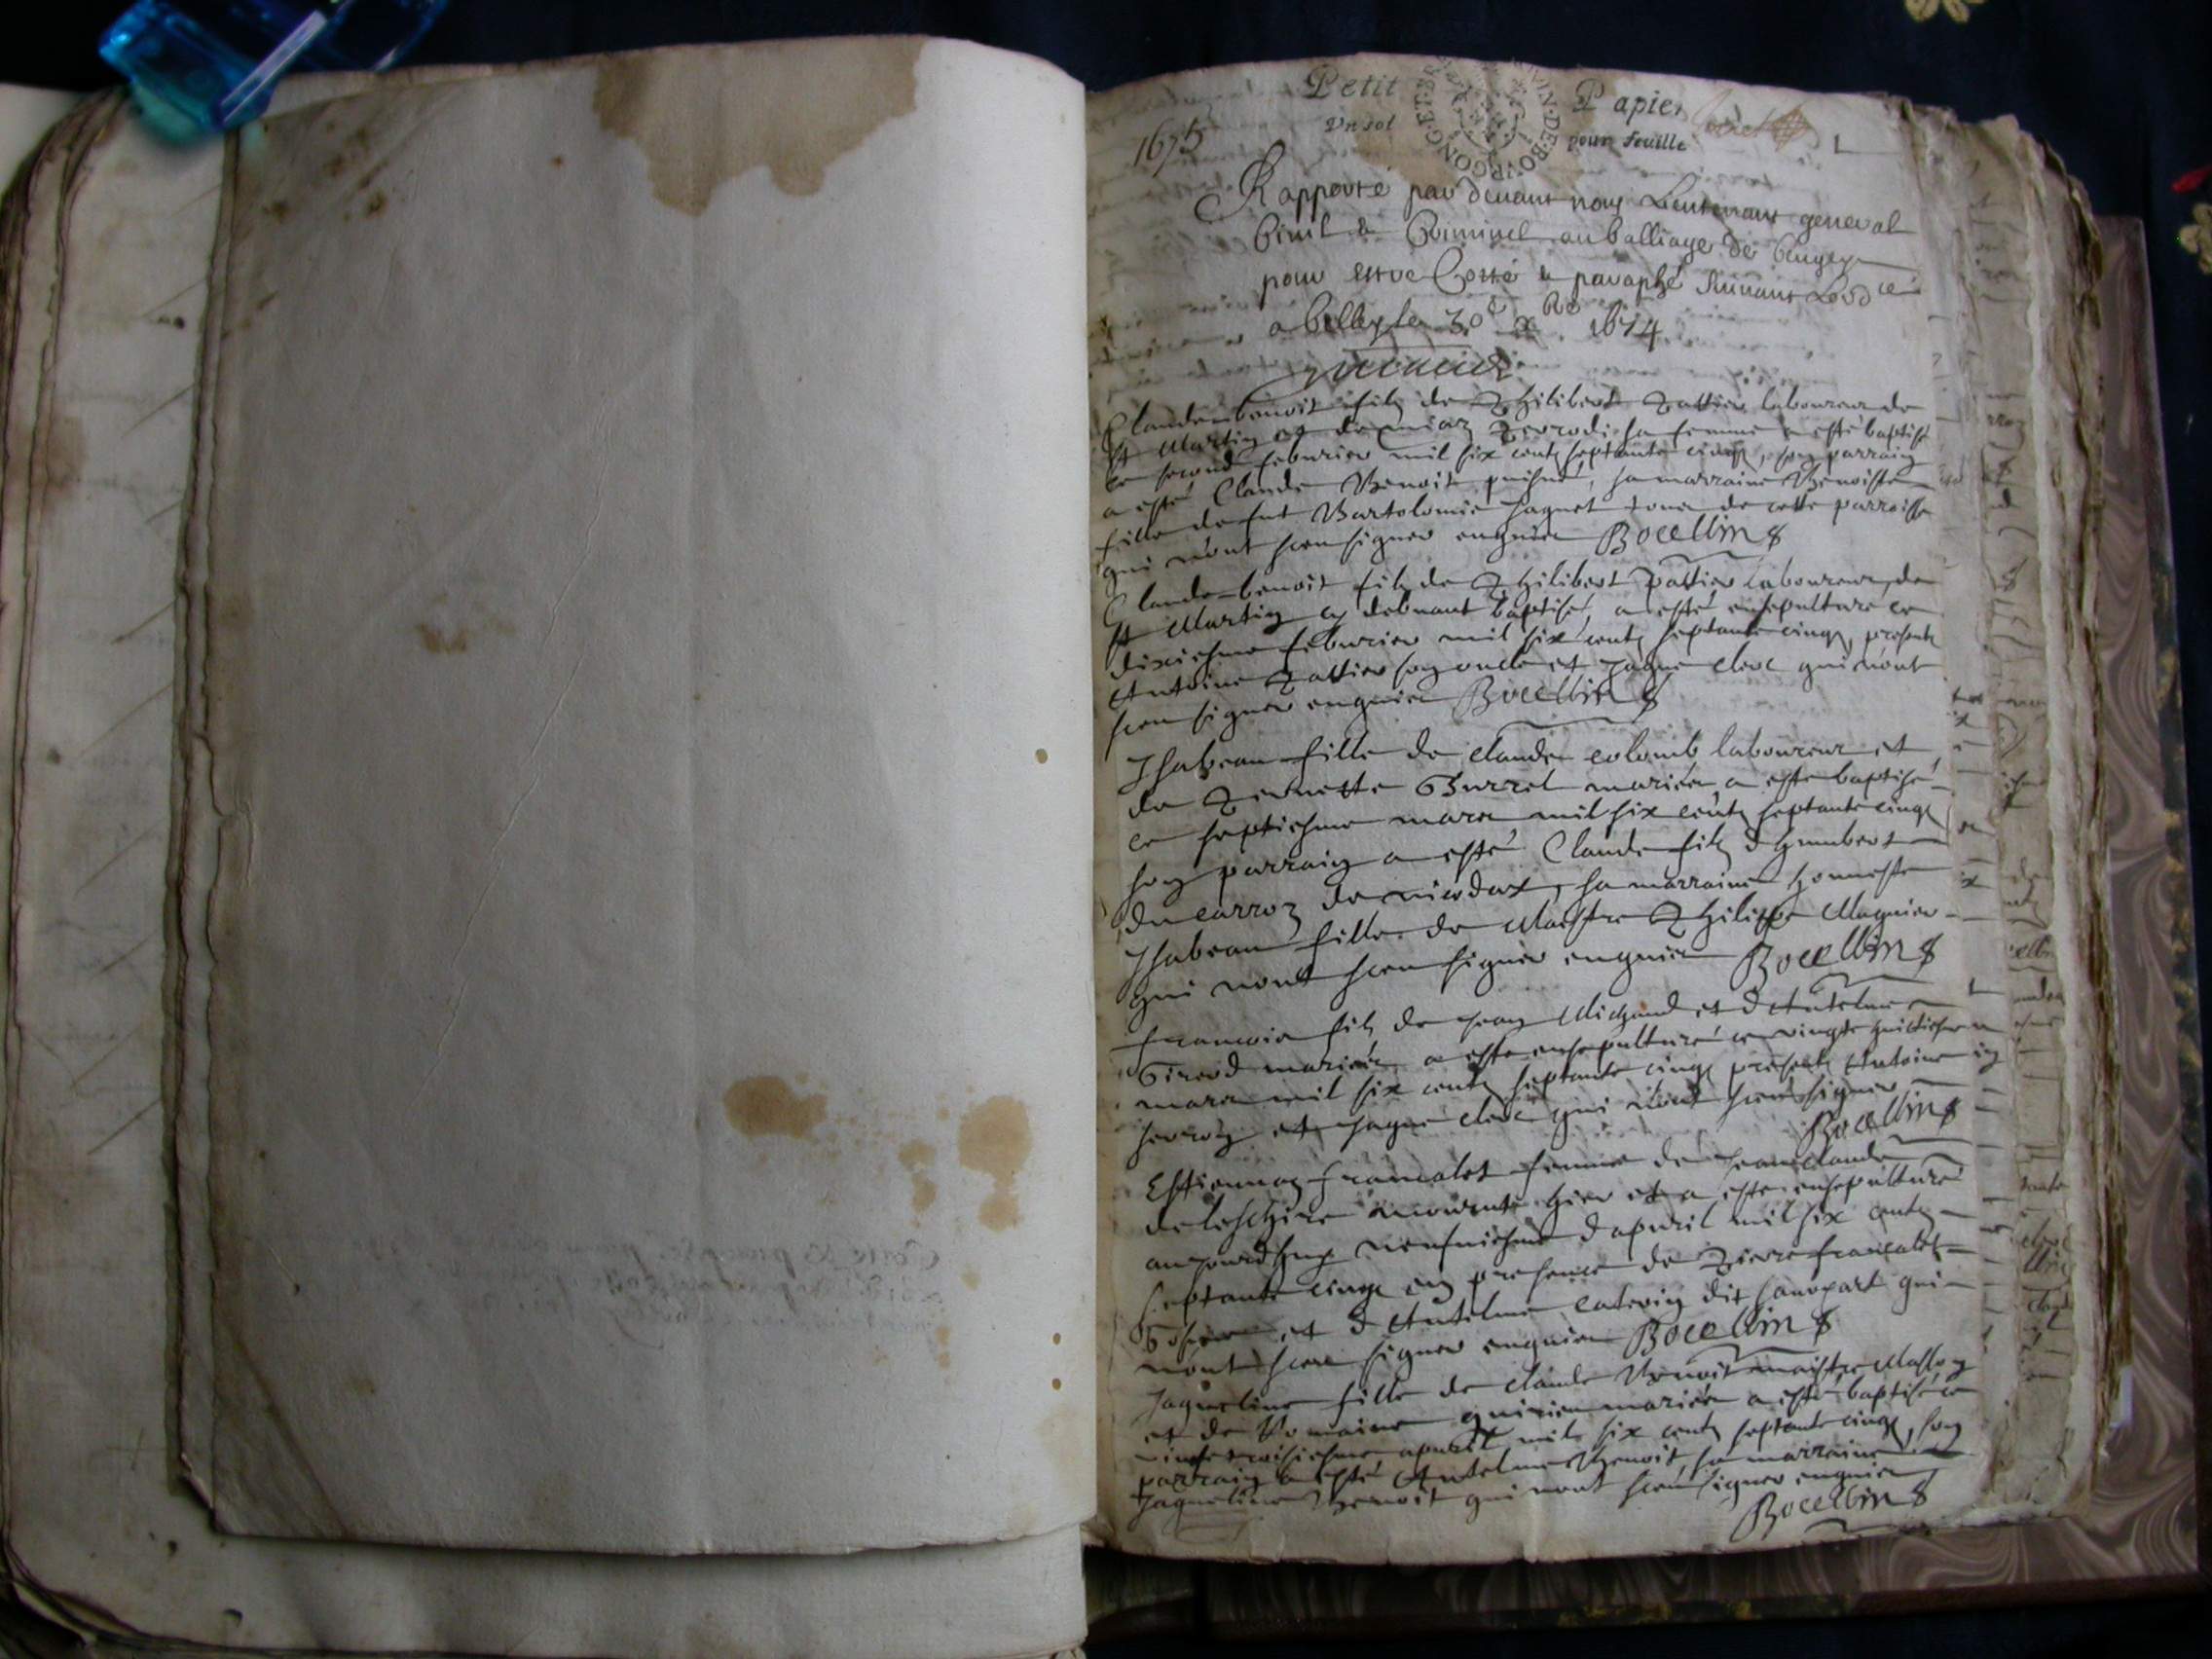 Petit Papier
Un sol pour feuille
1675
Rapporté par devant nous Lieutenant general
Civil & Criminel au balliage de bugey
pour estre Cotté & paraphé suivant
a belley le 30e xbre 1674
Claude benoit filz de Philibert Pattier laboureur de
st Martin et de Perrodi sa femme a esté baptisé
ce second febvrier mil six centz septante cinqz, son parrain
a esté Claude Benoit puisné, sa marraine Benoiste
fille de fut Bartolomie Jaquet tous de cette parroisse
qui n'ont sceu signer enquis Bocellin
Claude benoit filz de Philibert Pattier laboureur de
st Martin cy debvant baptisé, a esté ensepulturé ce
dixiesme febvrier mil six centz septante cinqz, presentz
Antoine Pattier son oncle et Jaque clerc qui n'ont
sceu signer enquis Bocellin
Isabeau fille de claude colomb laboureur et
de Pernette Burrel mariés, a esté baptisé
ce septiesme mars mil six centz septante cinqz
son parrain a esté Claude filz d humbert
du carroz de, sa marraine honneste
Isabeau fille de Maistre Philippe Magnier
qui n'ont sceu signer enquis Bocellin
francois filz de Jean Michaud et d Antelme
Girerd mariés, a esté ensepulturé ce vingte huictiesme
mars mil six centz septante cinqz presentz Antoine
et Jaque clerc qui n'ont sceu signer
Bocellin
Estiennaz francalet femme de Jean claude
mourut hier et a esté ensepulturé
aujourdhuy neufviesme d apvril mil six centz
septante cinqz en presence de Pierre francalet
et d Antelme dit qui
n'ont sceu signer enquis Bocellin
Jaqueline fille de claude Benoit maistre Masson
et de Romaine mariés a esté baptisé ce
vingte troisiesme apvril mil six centz septante cinqz, son
parrain a esté Antelme Benoit, sa marraine
Jaqueline Benoit qui n'ont sceu signer enquis
Bocellin